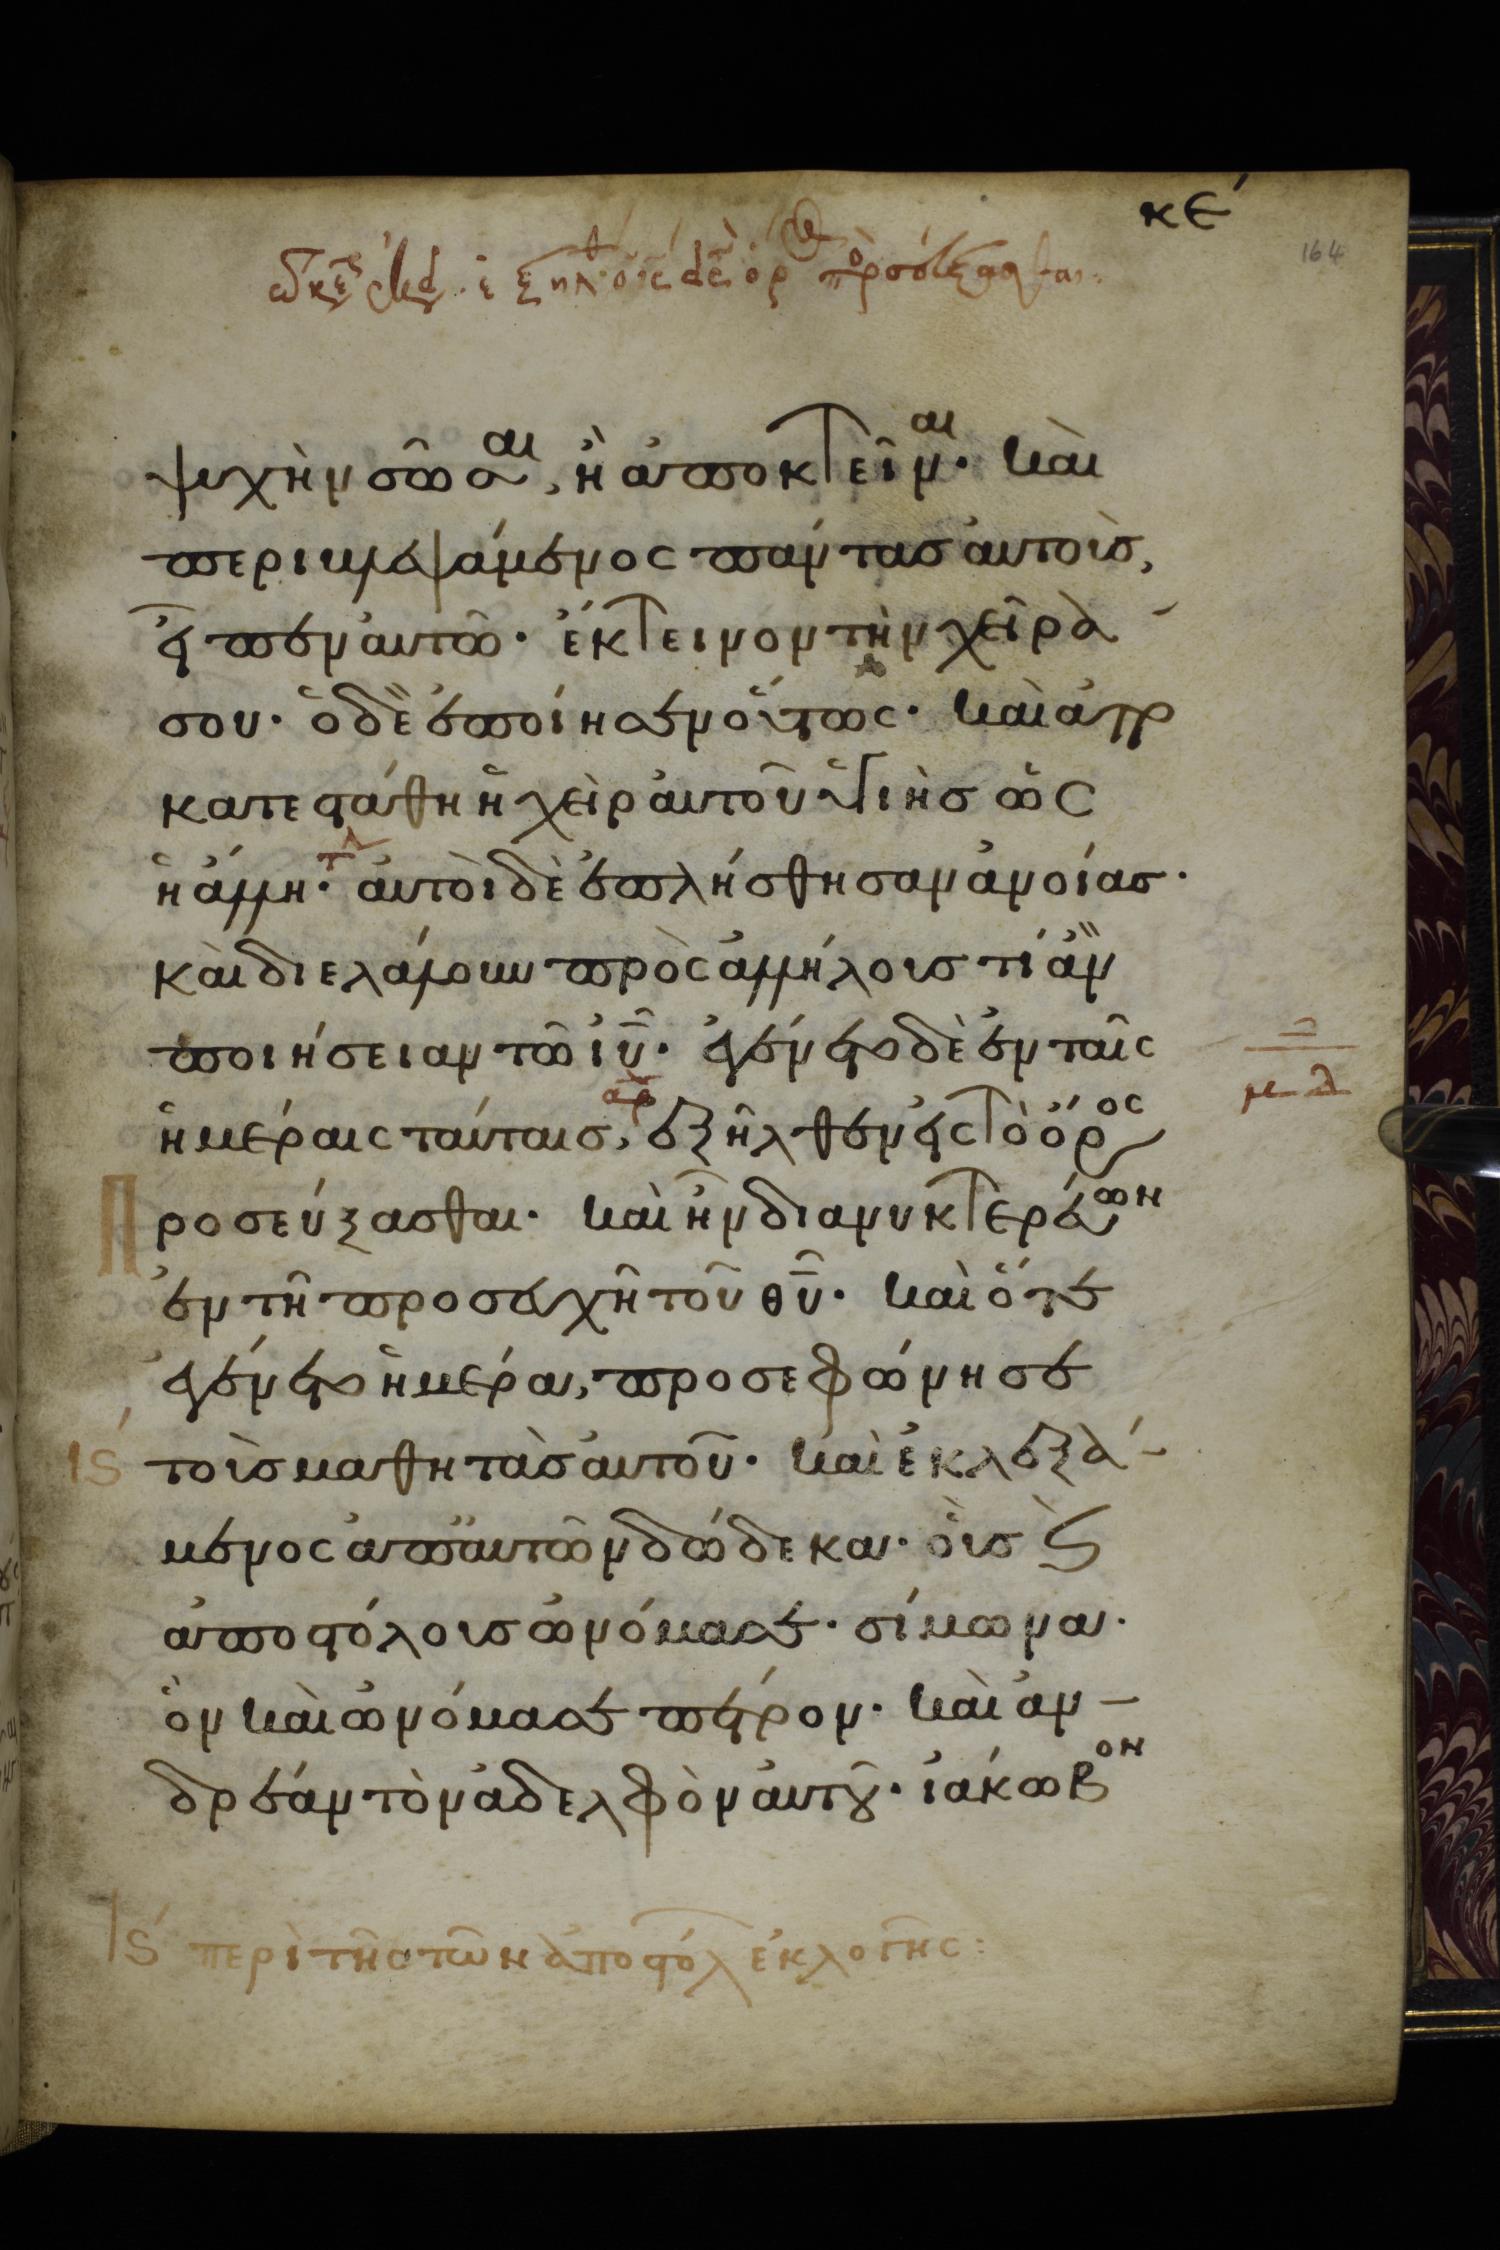 κε´
164
ψυχὴν σῶσαι, ἢ ἀποκτεῖναι· καὶ
περιβλεψάμενος πάντας αὐτοὺς,
εἶπεν αὐτῶ· ἔκτεινον τὴν χεῖρά
σου· ὁ δὲ ἐποίησεν οὕτως· καὶ ἀπο
κατεστάθη ἡ χεὶρ αὐτοῦ ὑγιὴς ὡς
ἡ ἄλλη· αὐτοὶ δὲ ἐπλήσθησαν ἀνοίας·
καὶ διελάλουν πρὸς ἀλλήλους τί ἂν
ποιήσειαν τῶ ἰῦ· ἐγένετο δὲ ἐν ταῖς
ἡμέραις ταύταις, ἐξῆλθεν εἰς τὸ ὄρος
προσεύξασθαι· καὶ ἦν διανυκτερεύων
ἐν τῆ προσευχῆ τοῦ θῦ· καὶ ὅτε
ἐγένετο ἡμέρα, προσεφώνησε
ις´ τοὺς μαθητὰς αὐτοῦ· καὶ ἐκλεξά-
μενος ἀπ' αὐτῶν δώδεκα· οὓς καὶ
ἀποστόλους ὠνόμασε· σίμωνα·
ὃν καὶ ὠνόμασε πέτρον· καὶ ἀν-
δρέαν τὸν ἀδελφὸν αὐτοῦ· ἰάκωβον
ις´ περὶ τῆς τῶν ἀποστόλ ἐκλογῆς: